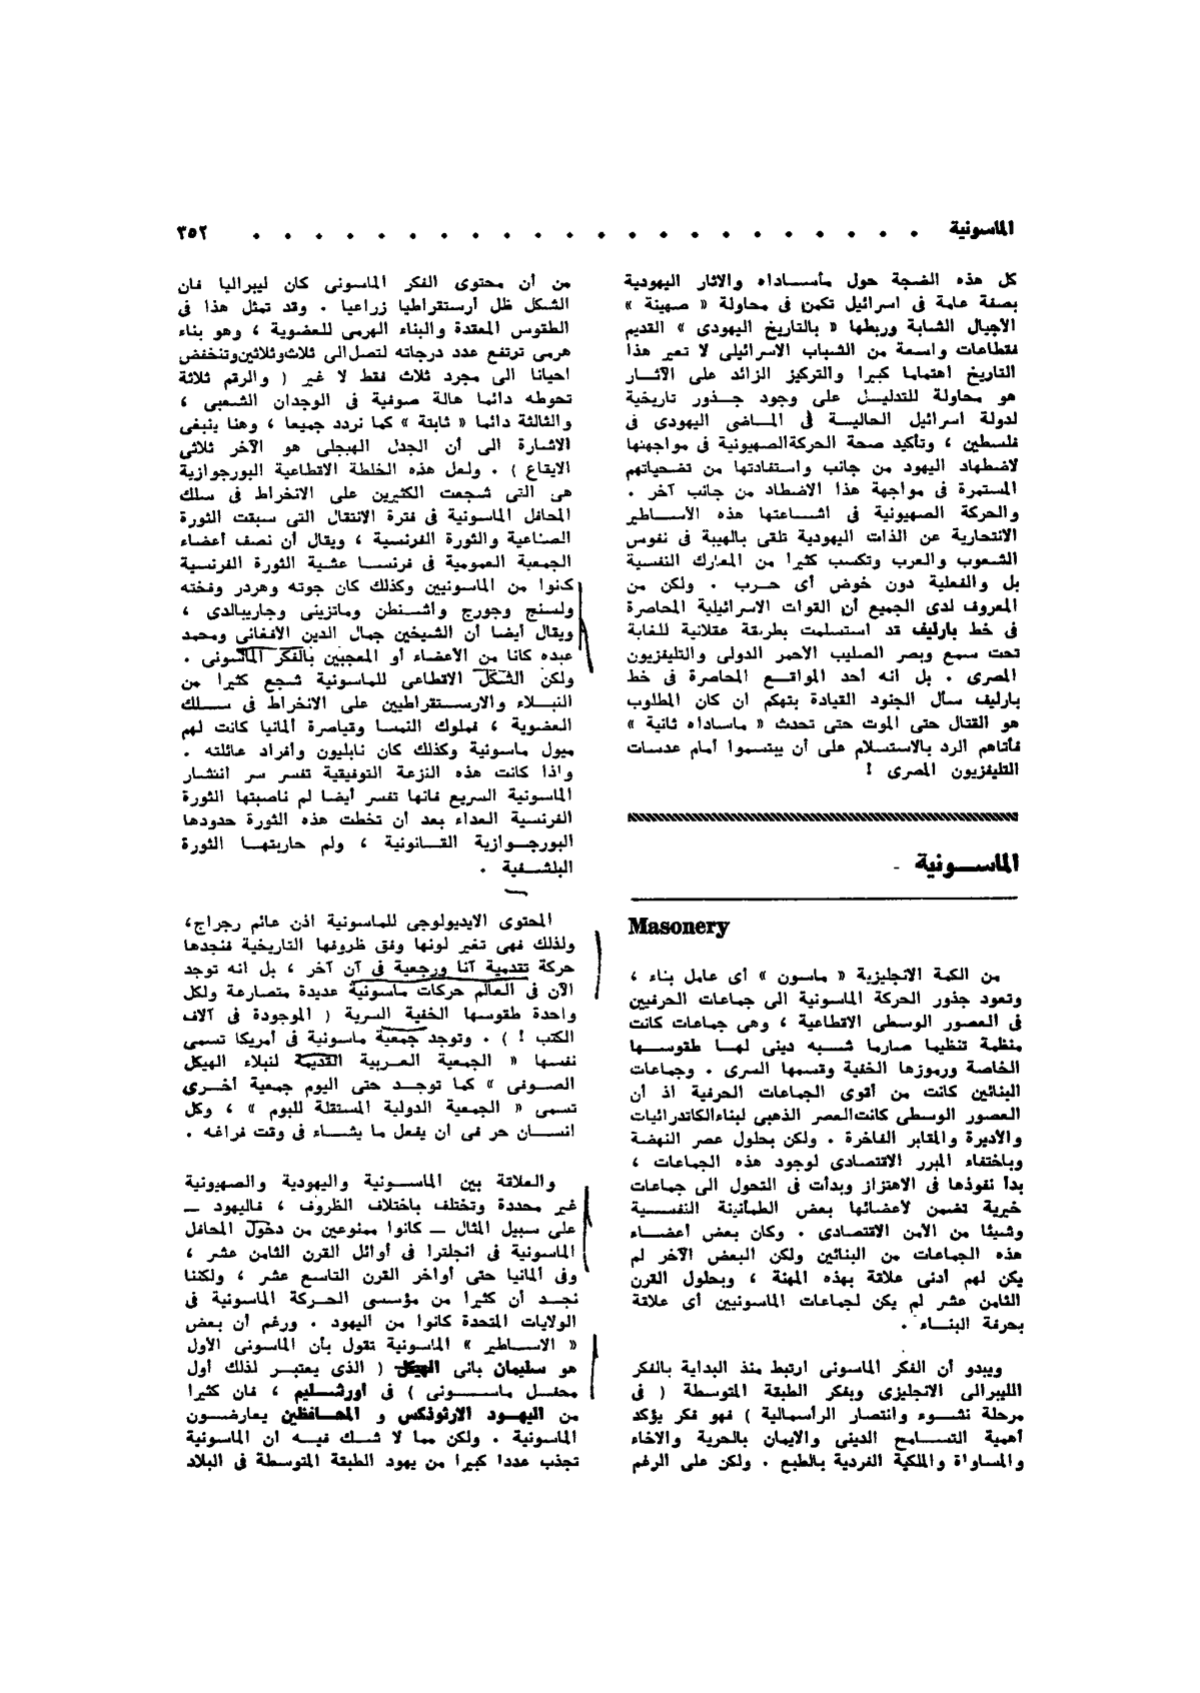 الماسونية . . . . . . . . . . . . . . . . . . . . . . ٣٥٢
كل هذه الضجة حول مأسساداه والاثار اليهودية
بصفة عامة فى اسرائيل تكمن فى محاولة « صهينة »
الأجيال الشابة وربطها « بالتاريخ اليهودى » القديم
فقطاعات واسعة من الشباب الاسرائيلى لا تعير هذا
التاريخ اهتماما كبيرا والتركيز الزائد على الآثــار
هو محاولة للتدليـل على وجود جـذور تاريخية
لدولة اسرائيل الحاليـة فى المـاضى اليهودى فى
فلسطين ، وتأكيد صحة الحركةالصهيونية فى مواجهتها
لاضطهاد اليهود من جانب واستفادتها من تضحياتهم
المستمرة فى مواجهة هذا الاضطاد من جانب آخر .
والحركة الصهيونية فى اشـاعتها هذه الأسـاطير
الانتحارية عن الذات اليهودية تلقى بالهيبة فى نفوس
الشعوب والعرب وتكسب كثيرا من المعارك النفسية
بل والفعلية دون خوض أى حـرب . ولكن من
المعروف لدى الجميع أن القوات الاسرائيلية المحاصرة
فى خط بارليف قد استسلمت بطريقة عقلانية للغاية
تحت سمع وبصر الصليب الأحمر الدولى والتليفزيون
المصرى . بل انه أحد المواقـع المحاصرة فى خط
بارليف سأل الجنود القيادة بتهكم ان كان المطلوب
هو القتال حتى الموت حتى تحدث « ماساداه ثانية »
فأتاهم الرد بالاستسلام على أن يبتسموا أمام عدسات
التليفزيون المصرى !
الماســونية -
Masonery
من الكمة الانجليزية « ماسون » أى عامل بناء ،
وتعود جذور الحركة الماسونية الى جماعات الحرفيين
فى العصور الوسطى الاقطاعية ، وهى جماعات كانت
منظمة تنظيما صارما شـبه دينى لهـا طقوسـها
الخاصة ورموزها الخفية وقسمها السرى . وجماعات
البنائين كانت من أقوى الجماعات الحرفية اذ أن
العصور الوسطى كانت‌العصر الذهبى لبناءالكاتدرائيات
والأديرة والمقابر الفاخرة . ولكن بحلول عصر النهضة
وباختفاء المبرر الاقتصادى لوجود هذه الجماعات ،
بدأ نفوذها فى الاهتزاز وبدأت فى التحول الى جماعات
خيرية تضمن لأعضائها بعض الطمأنينة النفسـية
وشيئا من الأمن الاقتصادى . وكان بعض أعضـاء
هذه الجماعات من البنائين ولكن البعض الآخر لم
يكن لهم أدنى علاقة بهذه المهنة ، وبحلول القرن
الثامن عشر لم يكن لجماعات الماسونيين أى علاقة
بحرفة البنـاء .
ويبدو أن الفكر الماسونى ارتبط منذ البداية بالفكر
الليبرالى الانجليزى وبفكر الطبقة المتوسطة ( فى
مرحلة نشـوء وانتصار الرأسمالية ) فهو فكر يؤكد
أهمية التسـامح الدينى والايمان بالحرية والاخاء
والمساواة والملكية الفردية بالطبع . ولكن على الرغم
من أن محتوى الفكر الماسونى كان ليبراليا فان
الشكل ظل أرستقراطيا زراعيا . وقد تمثل هذا فى
الطقوس المعقدة والبناء الهرمى للعضوية ، وهو بناء
هرمى ترتفع عدد درجاته لتصل‌الى ثلاث‌وثلاثين‌وتنخفض
احيانا الى مجرد ثلاث فقط لا غير ( والرقم ثلاثة
تحوطه دائما هالة صوفية فى الوجدان الشعبى ،
والثالثة دائما « ثابتة » كما نردد جميعا ، وهنا ينبغى
الاشارة الى أن الجدل الهيجلى هو الآخر ثلاثى
الايقاع ) . ولعل هذه الخلطة الاقطاعية البورجوازية
هى التى شجعت الكثيرين على الانخراط فى سلك
المحافل الماسونية فى فترة الانتقال التى سبقت الثورة
الصناعية والثورة الفرنسية ، ويقال أن نصف أعضاء
الجمعية العمومية فى فرنسـا عشية الثورة الفرنسية
كنوا من الماسونيين وكذلك كان جوته وهردر وفخته
ولسنج وجورج واشـنطن وماتزينى وجاريبالدى ،
ويقال أيضا أن الشيخين جمال الدين الأفغانى ومحمد
عبده كانا من الأعضاء أو المعجبين بالفكر الماسونى .
ولكن الشكل الاقطاعى للماسونية شجع كثيرا من
النبـلاء والارسـتقراطيين على الانخراط فى سـلك
العضوية ، فملوك النمسا وقياصرة ألمانيا كانت لهم
ميول ماسونية وكذلك كان نابليون وأفراد عائلته .
واذا كانت هذه النزعة التوفيقية تفسر سر انتشار
الماسونية السريع فانها تفسر أيضا لم ناصبتها الثورة
الفرنسية العداء بعد أن تخطت هذه الثورة حدودها
البورجـوازية القـانونية ، ولم حاربتهـا الثورة
البلشـفية .
المحتوى الايديولوجى للماسونية اذن عائم رجراج،
ولذلك فهى تغير لونها وفق ظروفها التاريخية فنجدها
حركة تقدمية آنا ورجعية فى آن آخر ، بل انه توجد
الآن فى العالم حركات ماسونية عديدة متصارعة ولكل
واحدة طقوسها الخفية السرية ( الموجودة فى آلاف
الكتب ! ) . وتوجد جمعية ماسونية فى أمريكا تسمى
نفسها « الجمعية العـربية القديمة لنبلاء الهيكل
الصـوفى » كما توجـد حتى اليوم جمعية أخـرى
تسمى « الجمعية الدولية المستقلة للبوم » ، وكل
انسـان حر فى ان يفعل ما يشـاء فى وقت فراغه .
والعلاقة بين الماسـونية واليهودية والصهيونية
غير محددة وتختلف باختلاف الظروف ، فاليهود —
على سبيل المثال — كانوا ممنوعين من دخول المحافل
الماسونية فى انجلترا فى أوائل القرن الثامن عشر ،
وفى ألمانيا حتى أواخر القرن التاسع عشر ، ولكننا
نجـد أن كثيرا من مؤسسى الحـركة الماسونية فى
الولايات المتحدة كانوا من اليهود . ورغم أن بعض
« الأسـاطير » الماسونية تقول بأن الماسونى الأول
هو سليمان بانى الهيكل ( الذى يعتبـر لذلك أول
محفـل ماسـونى ) فى أورشـليم ، فان كثيرا
من اليهـود الأرثوذكس و المحـافظين يعارضـون
الماسونية . ولكن مما لا شـك فيـه ان الماسونية
تجذب عددا كبيرا من يهود الطبقة المتوسطة فى البلاد